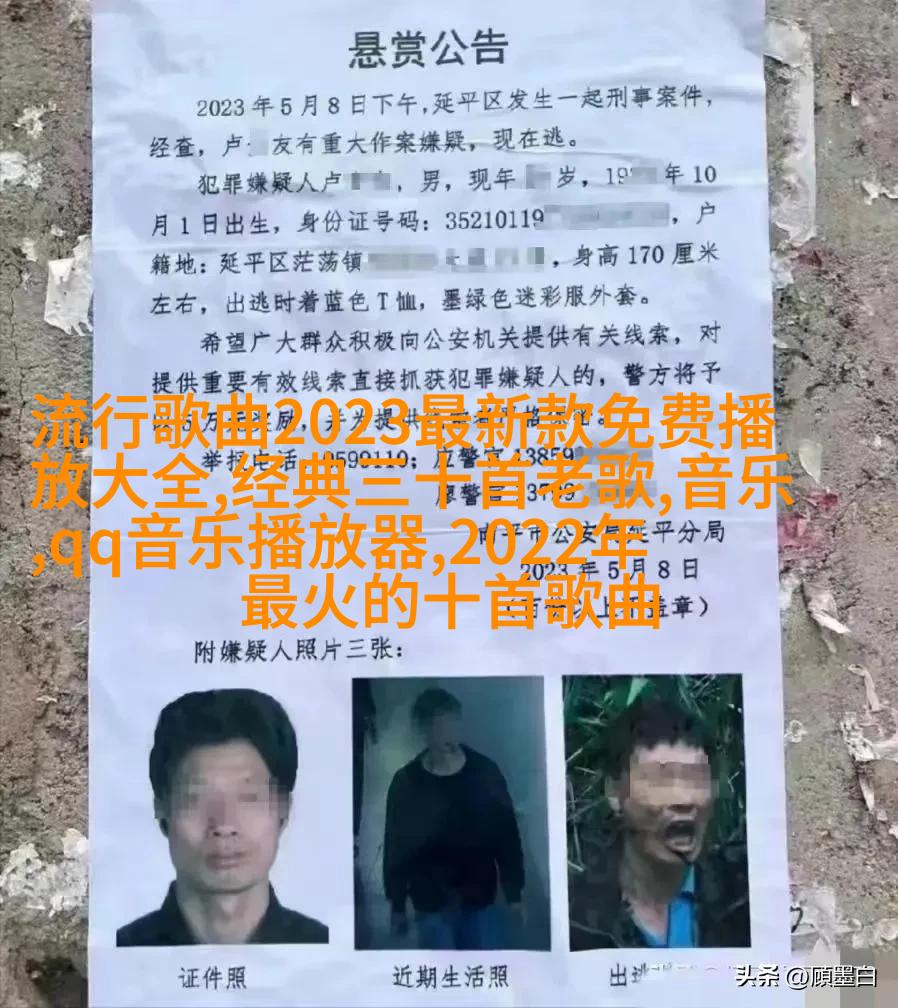 悬赏公告
2023年5月8日下午,延平区发生一起刑事案件,
经查,卢 友有重大作案嫌疑,现在逃。
犯罪嫌疑人卢 ,男,现年 岁,19 年10
月1日出生,身份证号码:35210119 ,户
籍地:延平区茫荡镇 ,身高170厘米
左右,出逃时着蓝色T恤,墨绿色迷彩服外套。
希望广大群众积极向公安机关提供有关线索,对
提供重要有效线索直接抓获犯罪嫌疑人的,警方将予
流行歌曲2023最新款免费播
放大全,经典三十首老歌,音乐
,qq音乐播放器,2022年
最火的十首歌曲
举报电话
南平市公安局延平分局
2023年5月8日
附嫌疑人照片三张:
证件照
近期生活照
出逃
头条 @顾墨白